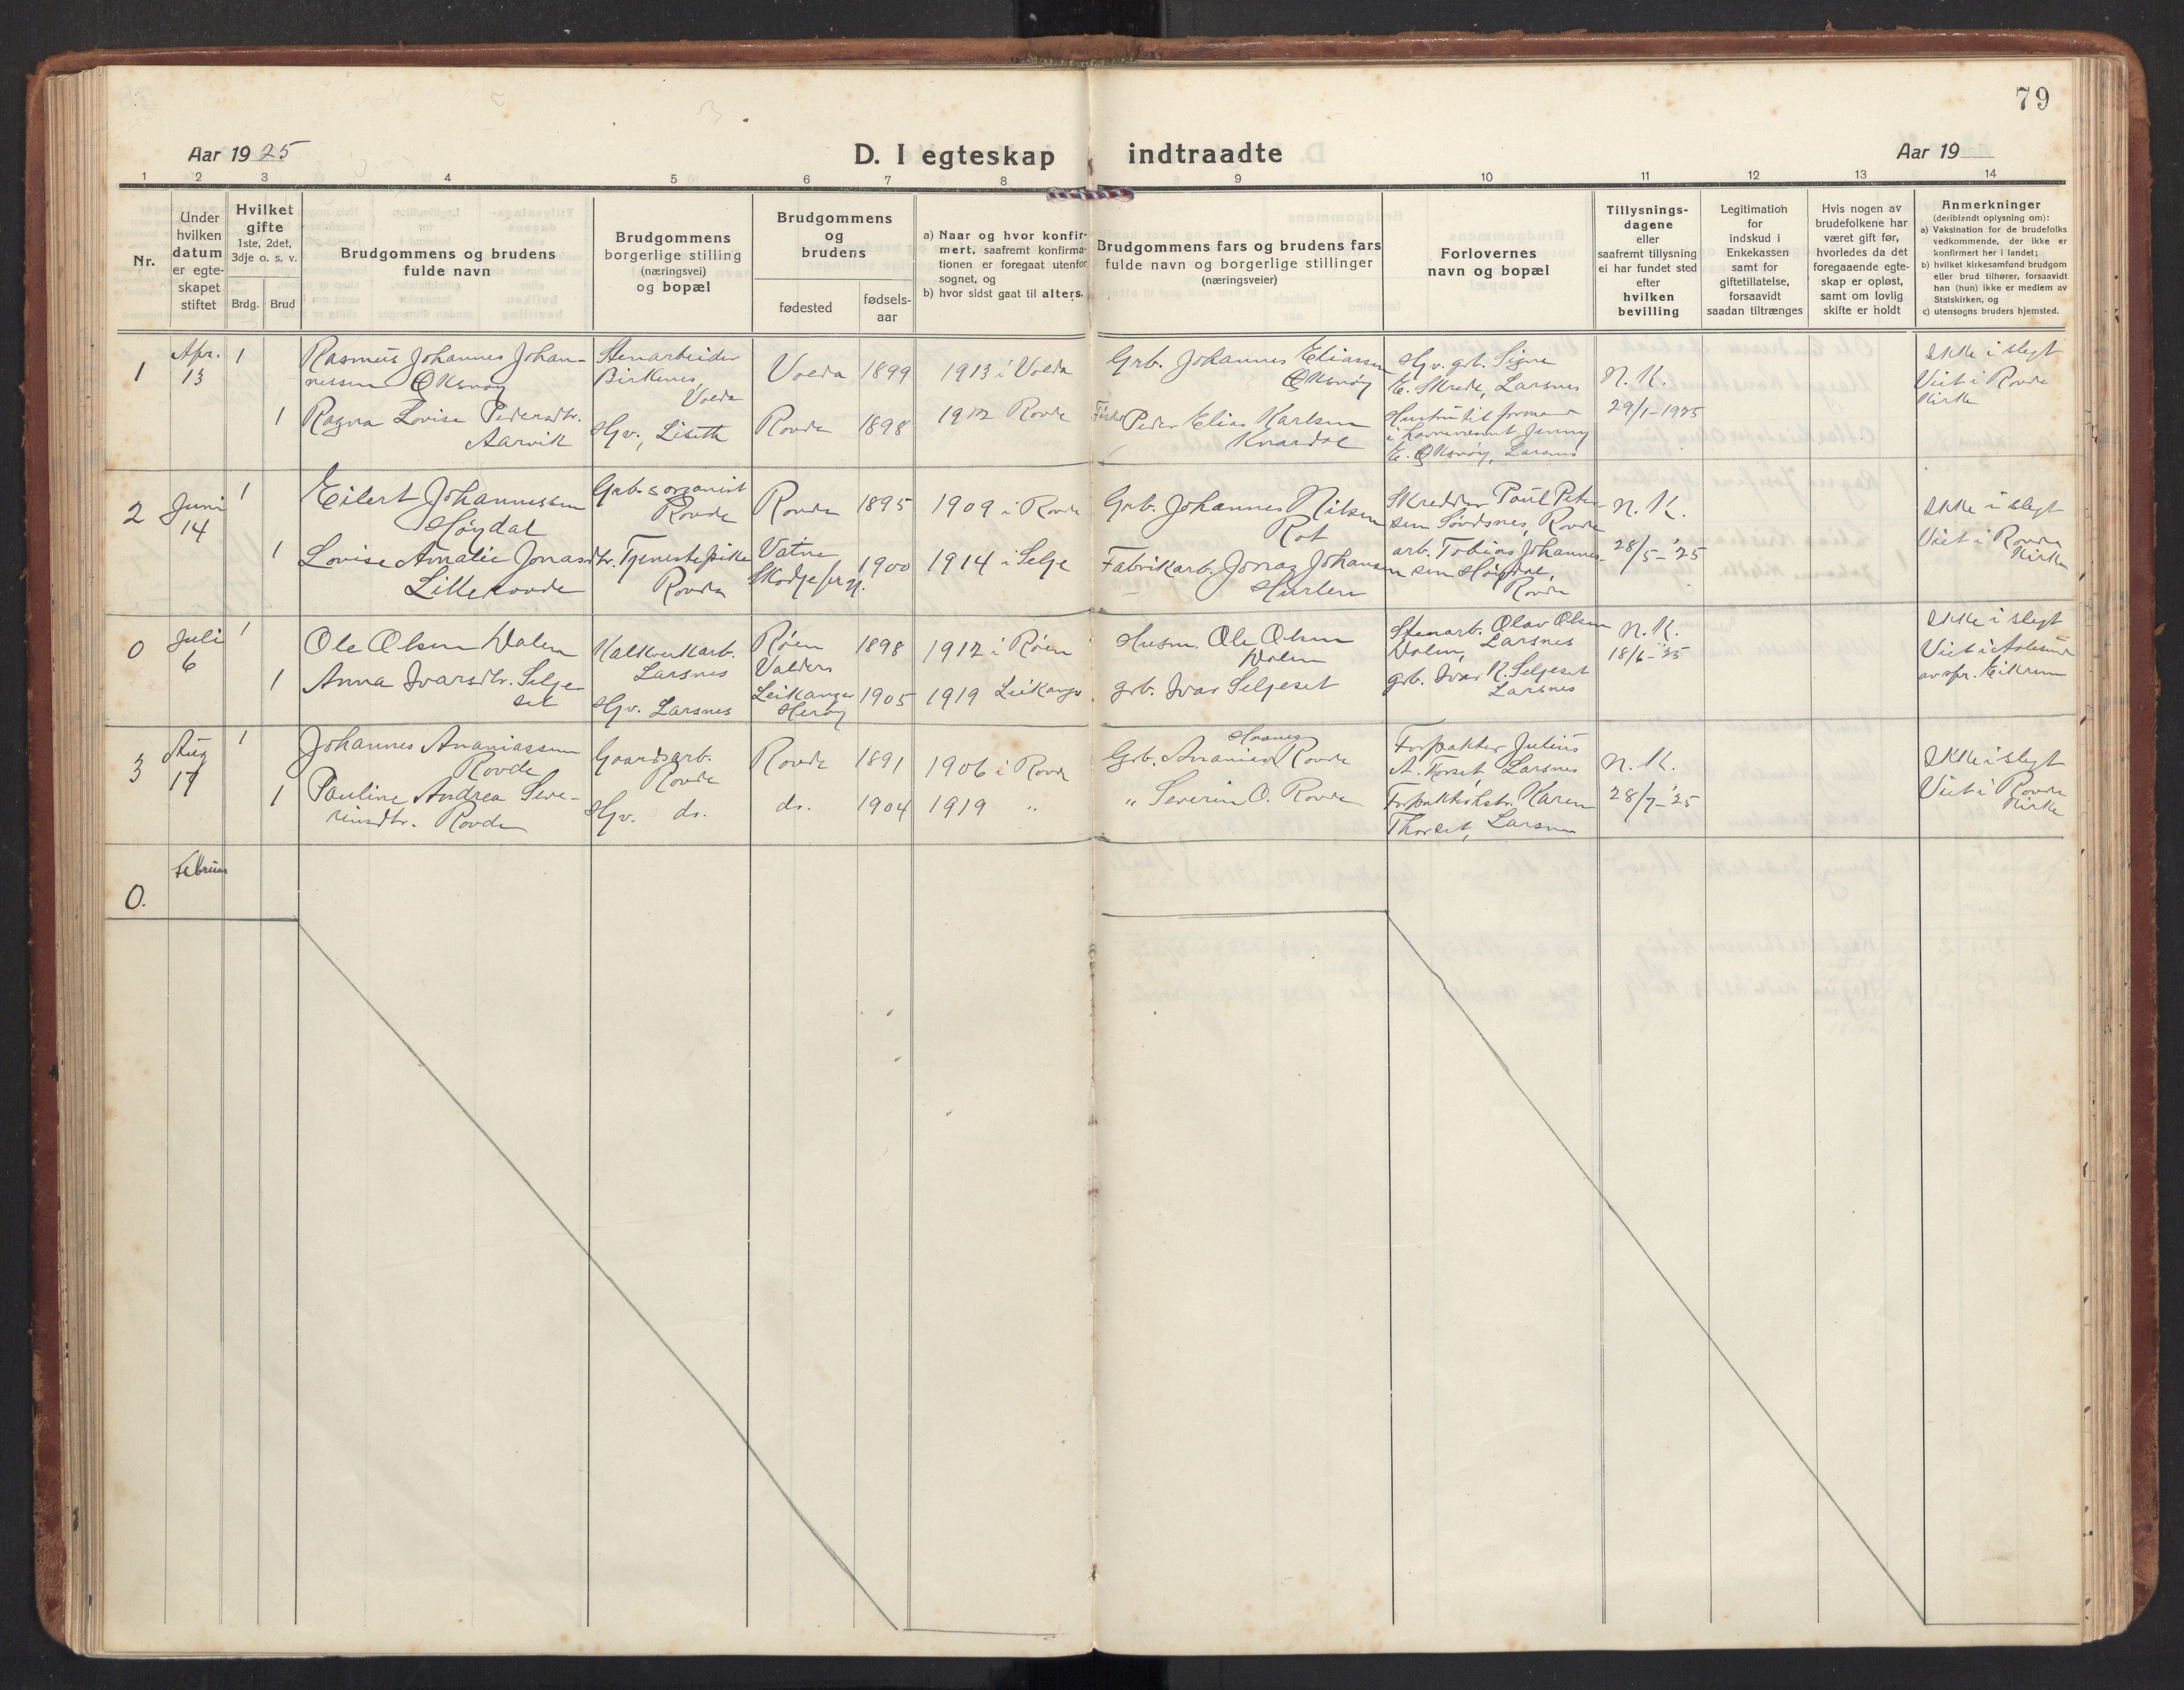 79
Aar 1925
D. I egteskap indtraadte
Aar 19
1 2 3 4 5 6 7 8 9 10 11 12 13 14
Nr.
Under
hvilken
datum
er egte-
skapet
stiftet
Hvilket
gifte
1ste, 2det,
3dje o. s. v.
Brdg. Brud
Brudgommens og brudens
fulde navn
Brudgommens
borgerlige stilling
(næringsvei)
og bopæl
Brudgommens
og
brudens
fødested
fødsels-
aar
a) Naar og hvor konfir-
mert, saafremt konfirma-
tionen er foregaat utenfor
sognet, og
b) hvor sidst gaat til alters.
Brudgommens fars og brudens fars
fulde navn og borgerlige stillinger
(næringsveier)
Forlovernes
navn og bopæl
Tillysnings-
dagene
eller
saafremt tillysning
ei har fundet sted
efter
hvilken
bevilling
Legitimation
for
indskud i
Enkekassen
samt for
giftetillatelse,
forsaavidt
saadan tiltrænges
Hvis nogen av
brudefolkene har
været gift før,
hvorledes da det
foregaaende egte-
skap er opløst,
samt om lovlig
skifte er holdt
Anmerkninger
(deriblandt oplysning om):
a) Vaksination for de brudefolks
vedkommende, der ikke er
konfirmert her i landet;
b) hvilket kirkesamfund brudgom
eller brud tilhører, forsaavidt
han (hun) ikke er medlem av
Statskirken, og
c) utensogns bruders hjemsted.
1
Apr.
13
1
Rasmus Johannes Johan-
nessen Øksnøy
Stenarbeider
Birkenes
Volda
Volda 1899 1913 i Volda
Grb. Johannes Eliassen
Øksnøy
Hv. gt. Signe
E. Skrede, Larsnes
N. K.
29/1-1925
Ikke i slegt
Viet i Rovde
Kirke
1
Ragna Lovise Pedersdtr.
Aarvik
Hv., Liseth
Rovde 1898 1912 Rovde
Fisker Peder Elias Karlsen
Knardal
Hustru til formand
Jenny
E. Øksnøy, Larsnes
2
Juni
14
1
Eilert Johannessen
Høydal
Grb. & organist
Rovde
Rovde 1895 1909 i Rovde
Grb. Johannes Nilsen
Rot
Skredder Paul Peter-
sen Søvdsnes, Rovde
N. K.
28/5-'25
Ikke i slegt
Viet i Rovde
Kirke
1
Lovise Amalie Jonasdtr.
Lillerovde
Tjenestepike
Rovde
Vatne
Skodje prgj.
1900 1914 i Selje
Fabrikarb. Jonas Johansen
Hurlen
arb. Tobias Johannes-
sen Høydal,
Rovde
0
Juli
6
1
Ole Olsen Dalen
Kalkverkarb.
Larsnes
Røen
Valdres
1898 1912 i Røen
Husm. Ole Olsen
Dalen
Stenarb. Olav Olsen
Dalen, Larsnes
N. K.
18/6-'25
Ikke i slegt
Viet i Aalesund
av spr. Eikrem
1
Anna Ivarsdtr. Selje-
set
Hv. Larsnes
Leikanger
Herøy
1905 1919 Leikanger
grb. Ivar Seljeset
grb. Ivar R. Seljeset
Larsnes
3
Aug
17
1
Johannes Ananiassen
Rovde
Gaardsarb.
Rovde
Rovde 1891 1906 i Rovde
Grb. Ananias Rovde
Forpakter Julius
A. Thorset, Larsnes
N. K.
28/7-'25
Ikke i slegt
Viet i Rovde
Kirke
1
Pauline Andrea Seve-
rinsdtr. Rovde
Hv. do.
do. 1904 1919 "
" Severin O. Rovde
Karen
Thorset, Larsnes
0.
Februar